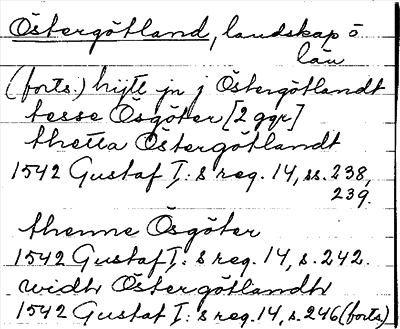 Östergötland, landskap o
län
(forts.) hijtt jn j Östergötlandt
tesse Ösgöter [2 ggr]
thetta Östergötlandt
1542 Gustaf I: s reg. 14, ss. 238,
239.
thenne Ösgöter
1542 Gustaf I: s reg. 14, s. 242.
widh Östergötlandh
1542 Gustaf I: s reg. 14, s. 246 (forts)